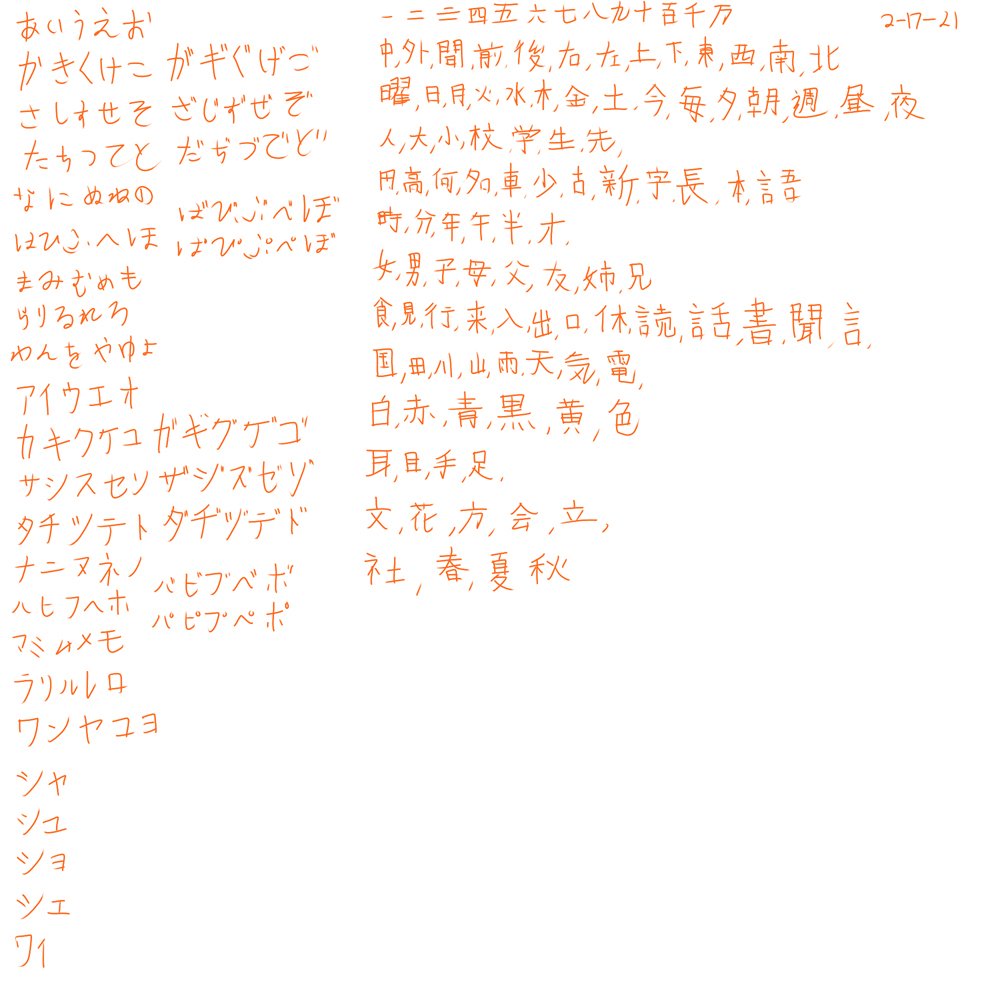 あいうえお
かきくけこ がギぐげご
さしすせそ ざじずぜぞ
たちつてと だぢづでど
なにぬねの
ばびぶべぼ
はひふへほ
ぱぴぷぺぽ
まみむめも
らりるれろ
わんをやゆよ
アイウエオ
カキクケコ ガギグゲゴ
サシスセソ ザジズゼゾ
タチツテト ダヂヅデド
ナニヌネノ
バビブベボ
ハヒフヘホ
パピプペポ
マミムメモ
ラリルレロ
ワンヤユヨ
シャ
シュ
ショ
シェ
ワイ
一二三四五六七八九十百千万
2-17-21
中,外,間,前,後,右,左,上,下,東,西,南,北
曜,日,月,火,水,木,金,土,今,毎,夕,朝,週,昼,夜
人,大,小,校,学,生,先,
円,高,何,多,車,少,古,新,字,長,本,語
時,分,年,午,半,才,
女,男,子,母,父,友,姉,兄
食,見,行,来,入,出,口,休,読,話,書,聞,言,
国,田,川,山,雨,天,気,電,
白,赤,青,黒,黄,色
耳,目,手,足,
文,花,方,会,立,
社,春,夏秋